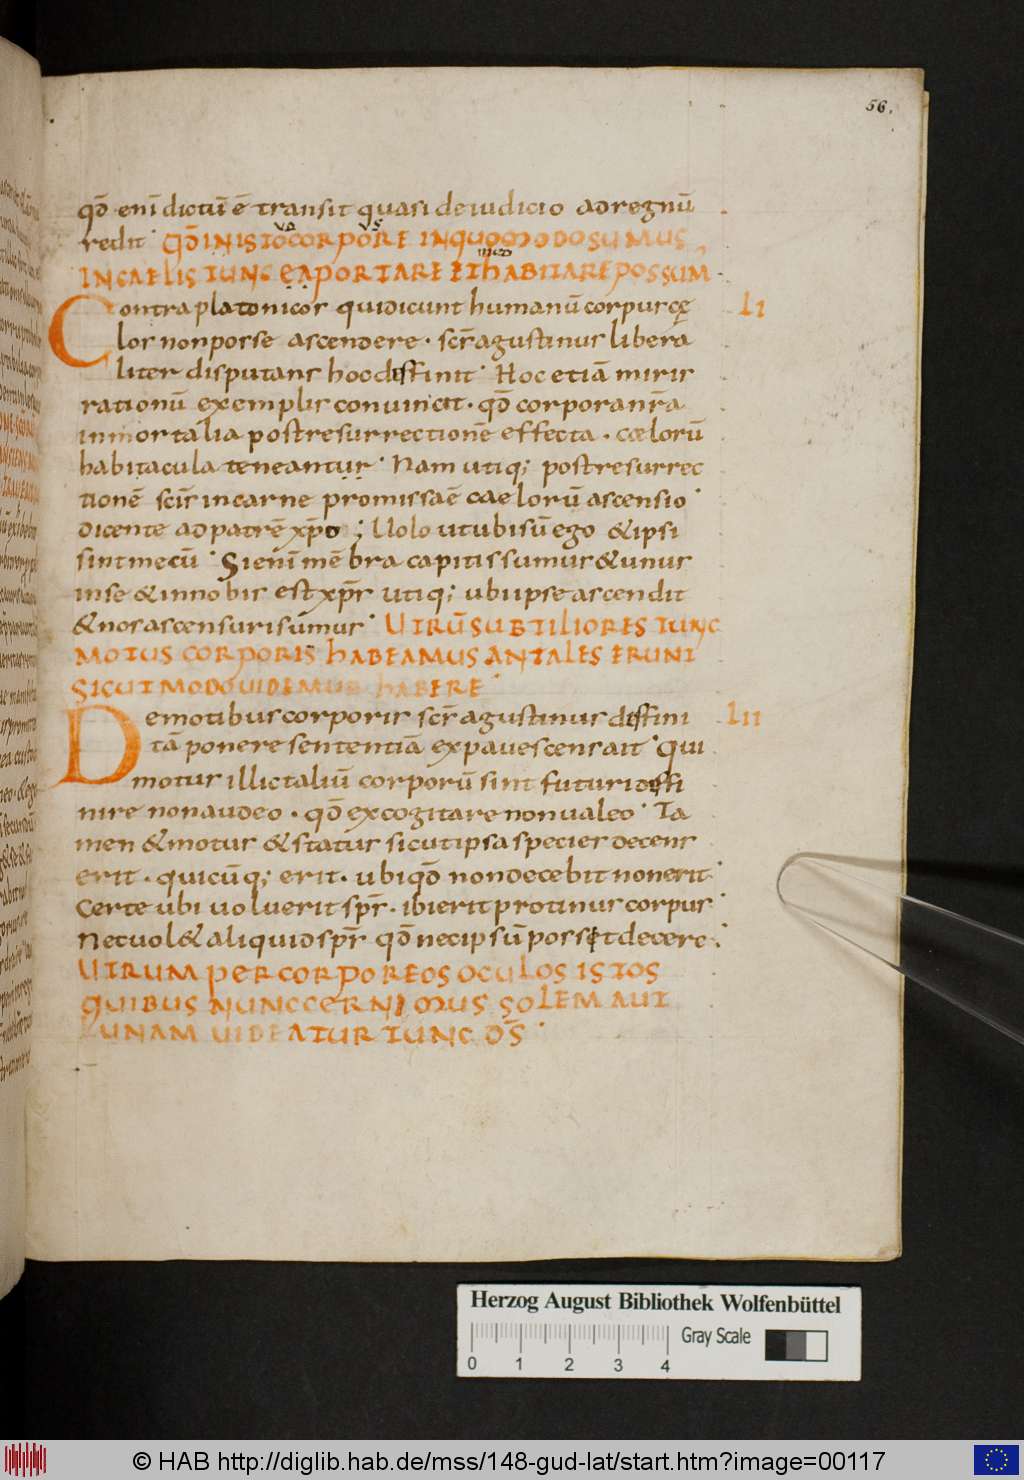 56.
qđ enī dictū ē transit quasi de iudicio ad regnū
redit · QĐ IN ISTO CORPORE IN QUO MODO SUMUS
IN CAELIS TUNC EA PORTARE ET HABITARE POSSUM
Contra platonicos qui dicunt humanū corpus cę LI
los non posse ascendere · scs̄ agustinus libera
liter disputans hoc deffinit · Hoc etiā miris
rationū exemplis convincit · qđ corpora nr̄a
inmortalia post resurrectionē effecta · cælorū
habitacula teneantur · Nam utiq; post resurrec
tionē scis̄ in carne promissa ē caelorū ascensio ·
dicente ad patrē xp̄o ; Uolo ut ubi sū ego & ipsi
sint mecū · Si enī mēbra capitis sumus & unus
in se & in nobis est xp̄s utiq; ubi ipse ascendit
& nos ascensuri sumus · UTRŪ SUBTILIORES TUNC
MOTUS CORPORIS HABEAMUS AN TALES ERUNT
SICUT MODO UIDEMUR HABERE ·
De motibus corporis scs̄ agustinus deffini LII
tā ponere sententiā expauescens ait · Qui
motus illic taliū corporū sint futuri deffi
nire non audeo · qđ excogitare non ualeo · Ta
men & motus & status sicut ipsa species decens
erit · quicūq; erit · ubi qđ non decebit non erit ·
Certe ubi uoluerit sps̄ · ibi erit protinus corpus
Nec uol& aliquid sps̄ qđ nec ipsū possit decere ·
UTRUM PER CORPOREOS OCULOS ISTOS
QUIBUS NUNC CERNIMUS SOLEM AUT
LUNAM UIDEATUR TUNC DS̄ ·
Herzog August Bibliothek Wolfenbüttel
0 1 2 3 4 Gray Scale
© HAB http://diglib.hab.de/mss/148-gud-lat/start.htm?image=00117